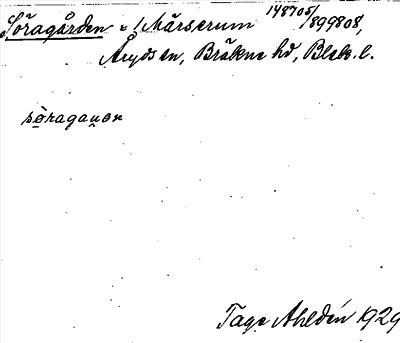 Söragården i Märserum 148705/899808,
Åryds sn, Bräkne hd, Blek. l.
söragaụən
Tage Ahldén 1929